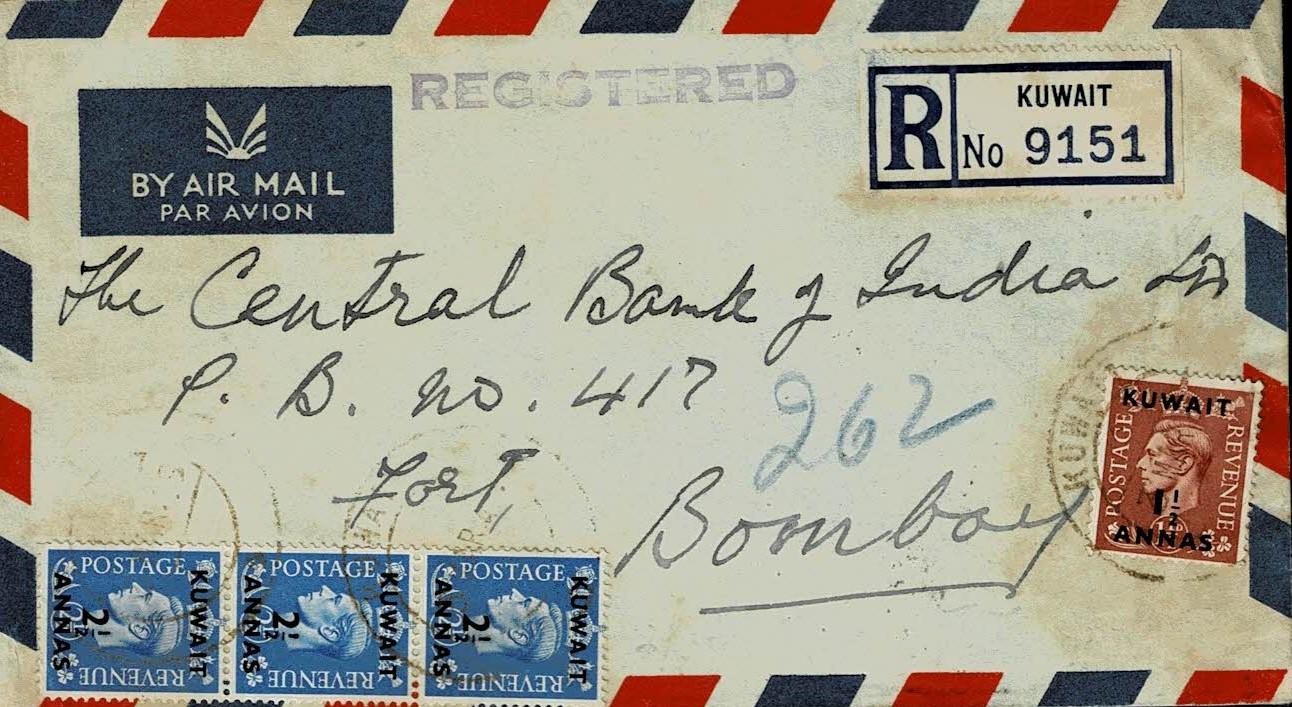 REGISTERED
BY AIR MAIL
PAR AVION
R
KUWAIT
No 9151
The Central Bank of India Ltd
P. B. No. 417
262
Fort,
Bombay
KUWAIT
KUWAIT
POSTAGE
REVENUE
1 1/2
ANNAS
POSTAGE
REVENUE
KUWAIT
2 1/2
ANNAS
POSTAGE
REVENUE
KUWAIT
2 1/2
ANNAS
POSTAGE
REVENUE
KUWAIT
2 1/2
ANNAS